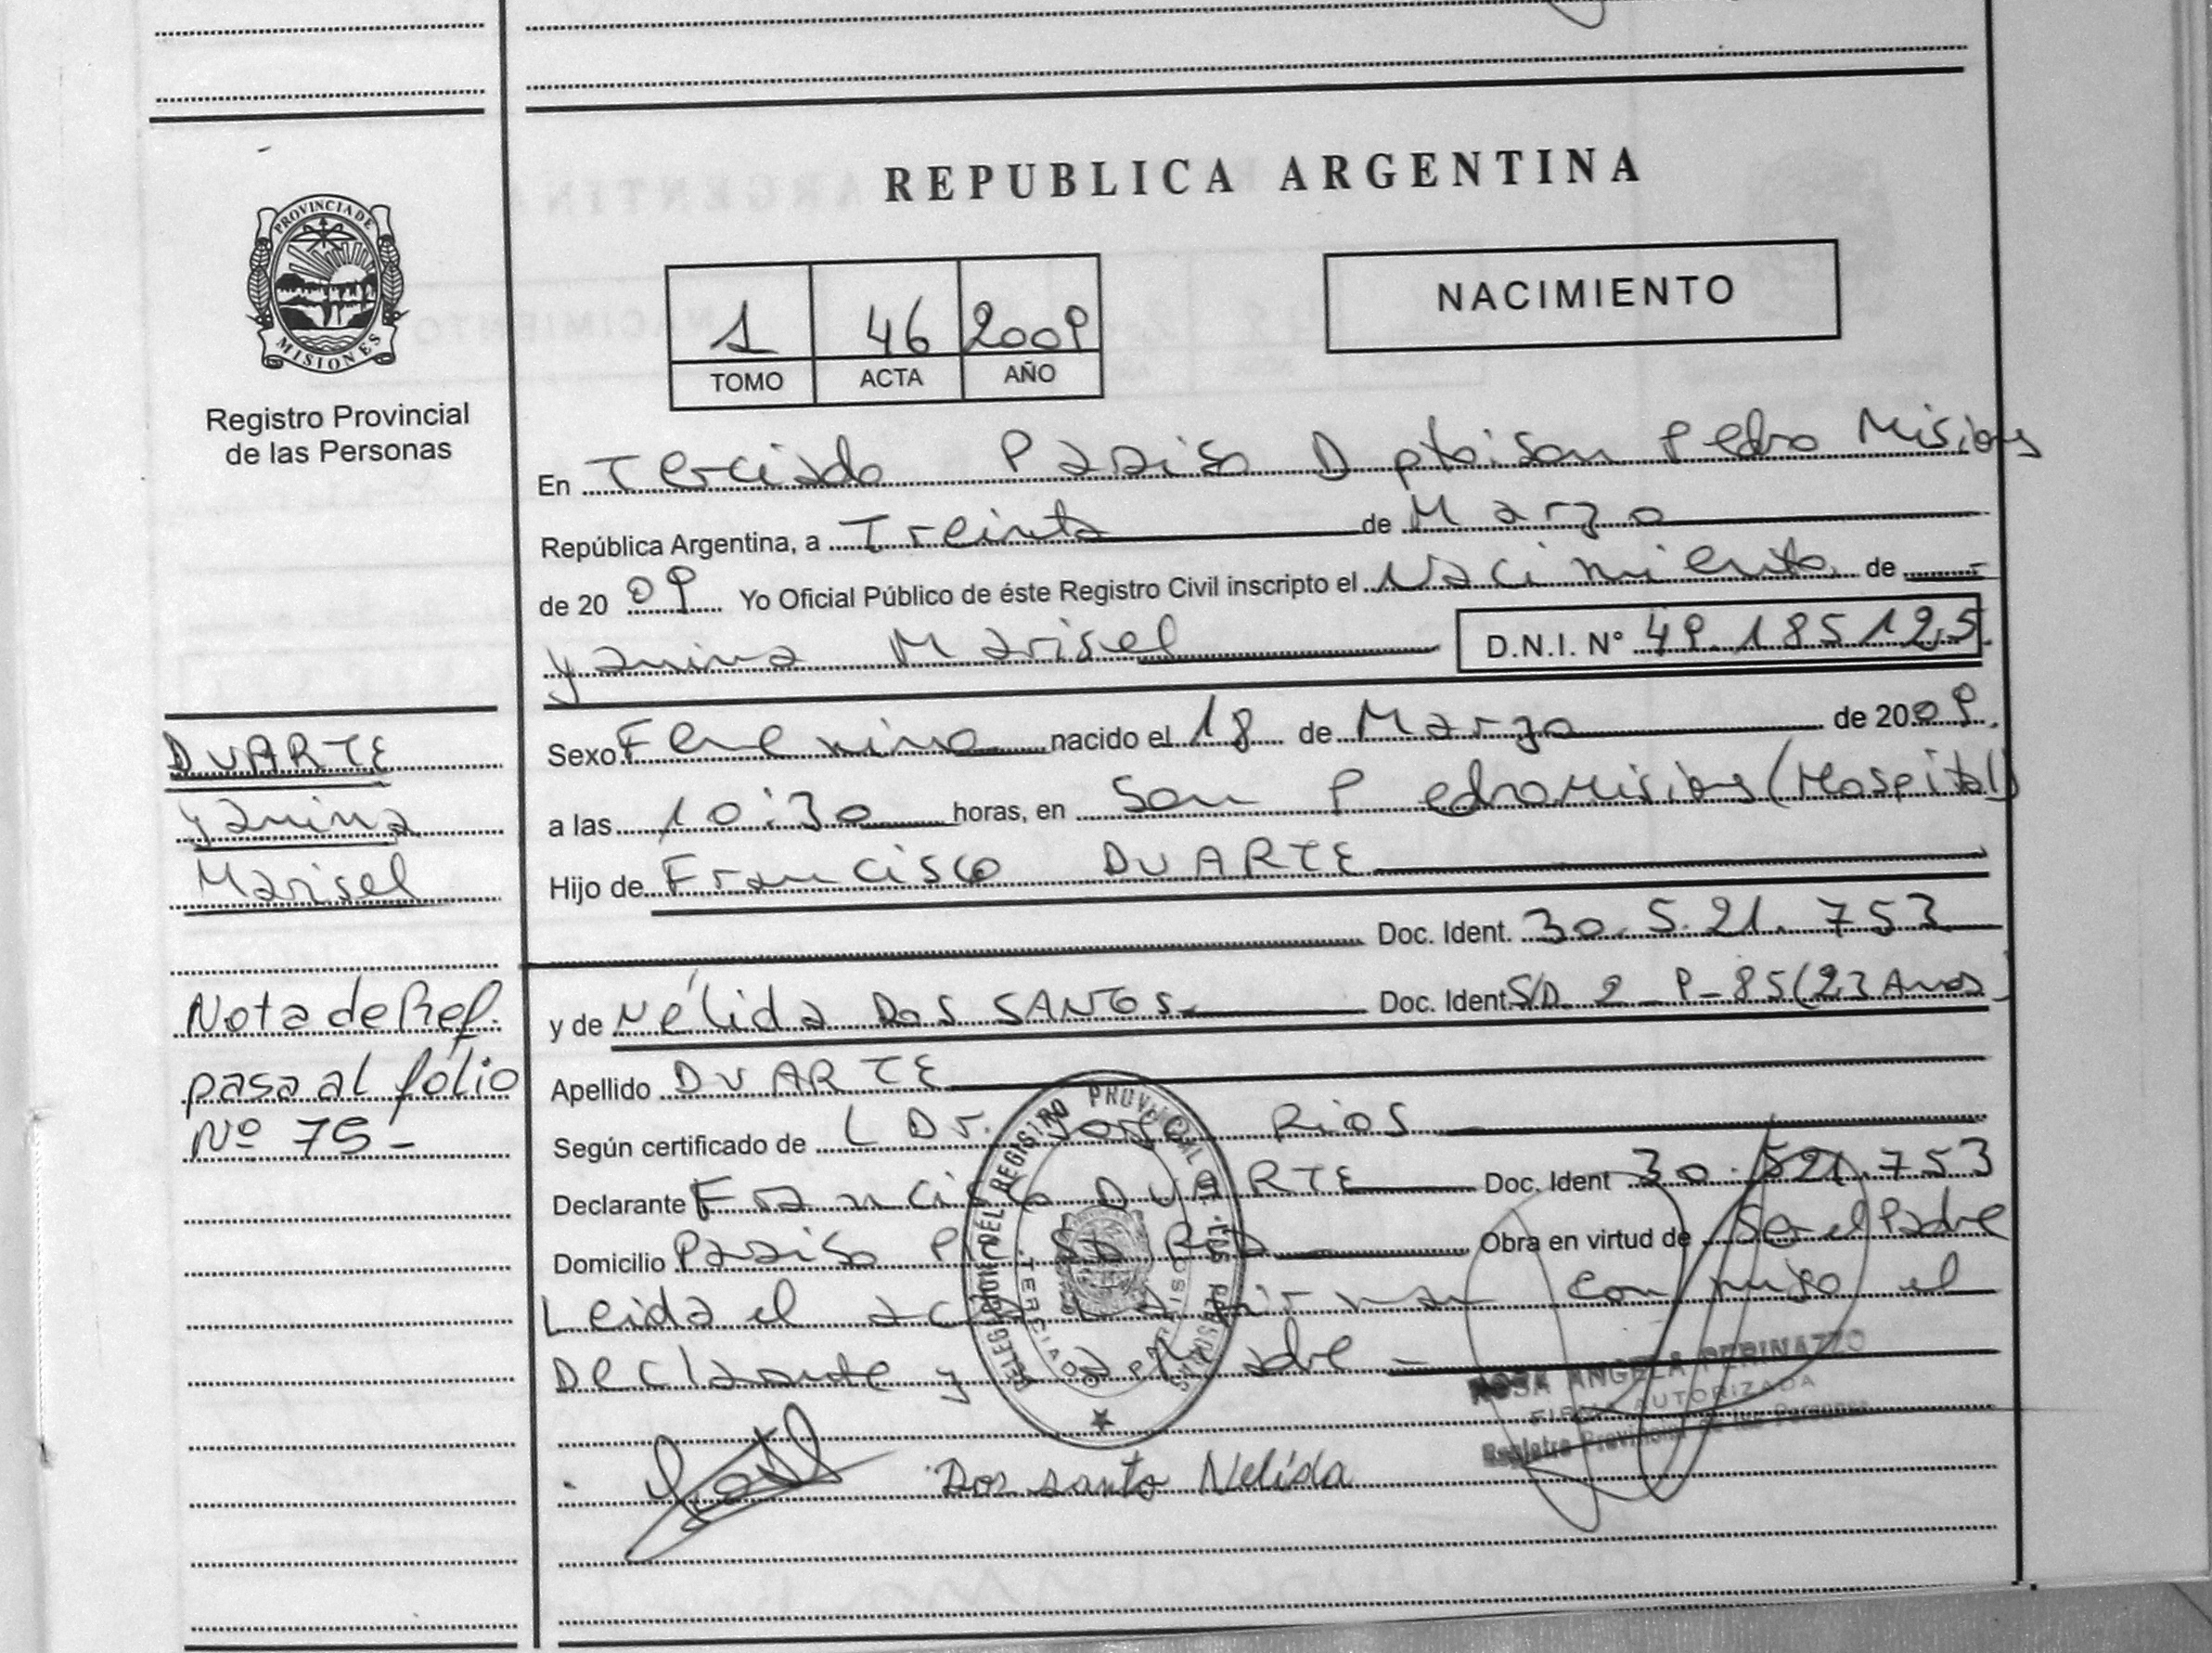 REPUBLICA ARGENTINA
PROVINCIA DE
MISIONES
Registro Provincial
de las Personas
1 46 2009
TOMO ACTA AÑO
NACIMIENTO
En Terciado Paraiso Dpto: San Pedro Misiones
República Argentina, a Treinta de Marzo
de 20 09 Yo Oficial Público de éste Registro Civil inscripto el Nacimiento de
Yanina Marisel D.N.I. N° 49.185125
Sexo Femenino nacido el 18 de Marzo de 2009.
a las 10:30 horas, en San Pedro Misiones (Hospital)
Hijo de Francisco DUARTE
Doc. Ident. 30.521.753
y de Nélida DOS SANTOS Doc. Ident. S/D 2-9-85 (23 Años)
Apellido DUARTE
Según certificado de L Dr. Jorge Rios
Declarante Francisco DUARTE Doc. Ident 30.521.753
Domicilio Paraiso Obra en virtud de Ser el Padre
Leida el acta la firman conmigo el
Declarante y la Madre -
DUARTE
Yanina
Marisel
Nota de Ref.
pasa al fólio
Nº 75-
DELEGACION DEL REGISTRO PROVINCIAL DE LAS PERSONAS
TERCIADO PARAISO
ROSA ANGELA PERINAZZO
FIRMA AUTORIZADA
Registro Provincial de las Personas
Dos santo Nelída